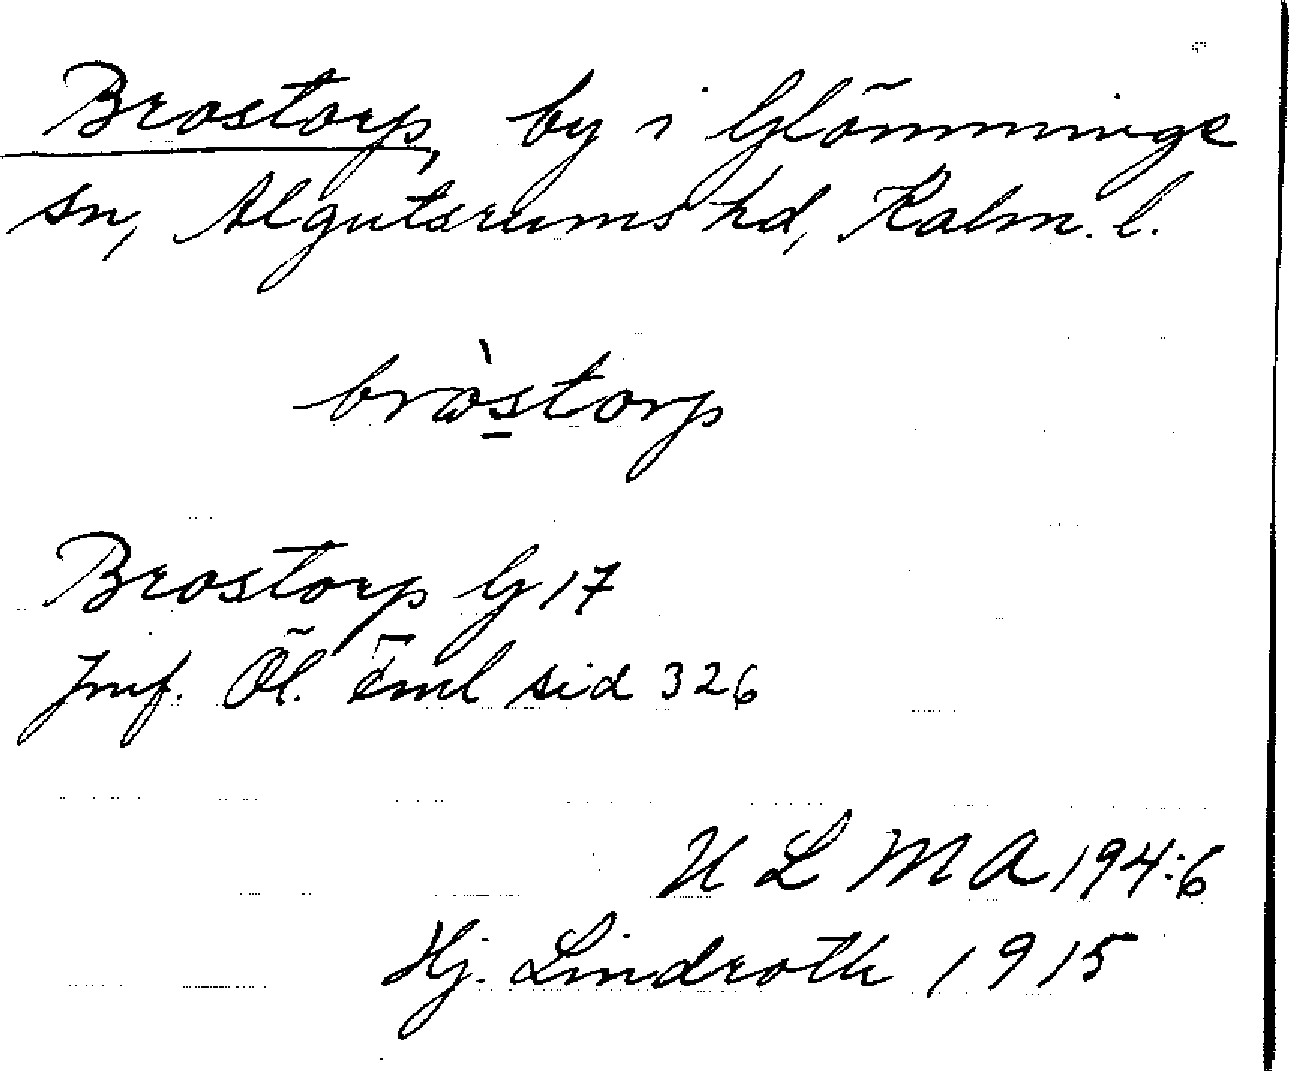 Brostorp, by i Glömminge
sn, Algutsrums hd, Kalm. l.
bròstorp
Brostorp G 17
Jmf. Öl. sid 326
U L M A 194:6
Hj. Lindroth 1915